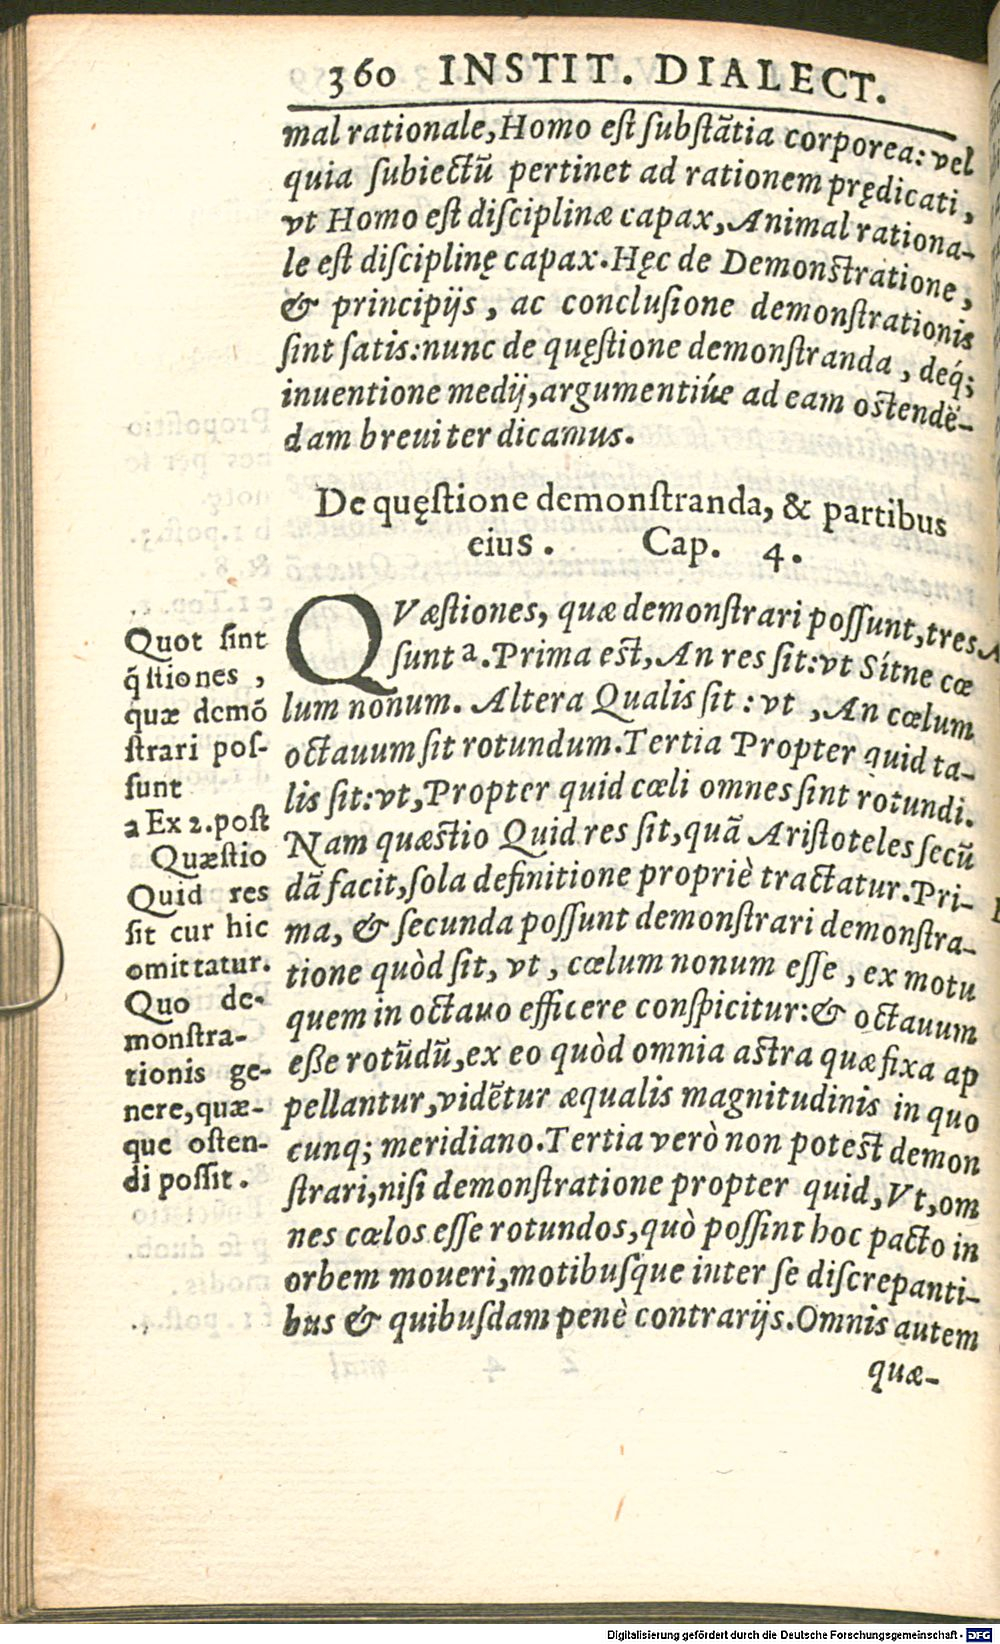 360 INSTIT. DIALECT.
mal rationale, Homo est substãtia corporea: vel
quia subiectũ pertinet ad rationem prędicati,
vt Homo est disciplinæ capax, Animal rationa-
le est disciplinę capax. Hęc de Demonstratione,
& principijs, ac conclusione demonstrationis
sint satis: nunc de quęstione demonstranda, deq́;
inuentione medij, argumentiúe ad eam ostendẽ-
dam breuiter dicamus.
De quęstione demonstranda, & partibus
eius. Cap. 4.
QVæstiones, quæ demonstrari possunt, tres
sunt a. Prima est, An res sit: vt Sítne cœ
lum nonum. Altera Qualis sit: vt, An cœlum
octauum sit rotundum. Tertia Propter quid ta-
lis sit: vt, Propter quid cœli omnes sint rotundi.
Nam quæstio Quid res sit, quã Aristoteles secũ
dã facit, sola definitione propriè tractatur. Pri-
ma, & secunda possunt demonstrari demonstra-
tione quòd sit, vt, cœlum nonum esse, ex motu
quem in octauo efficere conspicitur: & octauum
esse rotũdũ, ex eo quòd omnia astra quæ fixa ap
pellantur, vidẽtur æqualis magnitudinis in quo
cunq; meridiano. Tertia verò non potest demon
strari, nisi demonstratione propter quid, Vt, om
nes cœlos esse rotundos, quò possint hoc pacto in
orbem moueri, motibusque inter se discrepanti-
bus & quibusdam penè contrarijs. Omnis autem
quæ-
Quot sint
q̃stiones,
quæ demõ
strari pos-
sunt
a Ex 2. post
Quæstio
Quid res
sit cur hic
omittatur.
Quo de-
monstra-
tionis ge-
nere, quæ-
que osten-
di possit.
Digitalisierung gefördert durch die Deutsche Forschungsgemeinschaft - DFG